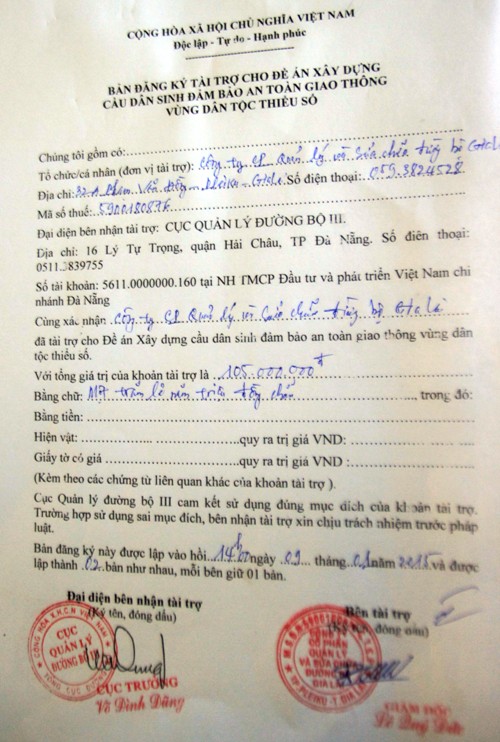 CỘNG HÒA XÃ HỘI CHỦ NGHĨA VIỆT NAM
Độc lập - Tự do - Hạnh phúc
BẢN ĐĂNG KÝ TÀI TRỢ CHO ĐỀ ÁN XÂY DỰNG
CẦU DÂN SINH ĐẢM BẢO AN TOÀN GIAO THÔNG
VÙNG DÂN TỘC THIỂU SỐ
Chúng tôi gồm có:
Tổ chức/cá nhân (đơn vị tài trợ): Công ty CP Quản lý và Sửa chữa đường bộ Gia Lai
Địa chỉ: Phạm Văn Đồng - Pleiku - Gia Lai Số điện thoại: 059.3824528
Mã số thuế: 5900180876
Đại diện bên nhận tài trợ: CỤC QUẢN LÝ ĐƯỜNG BỘ III.
Địa chỉ: 16 Lý Tự Trọng, quận Hải Châu, TP Đà Nẵng. Số điện thoại:
0511.3839755
Số tài khoản: 5611.0000000.160 tại NH TMCP Đầu tư và phát triển Việt Nam chi
nhánh Đà Nẵng
Cùng xác nhận: Công ty CP Quản lý và Sửa chữa đường bộ Gia Lai
đã tài trợ cho Đề án Xây dựng cầu dân sinh đảm bảo an toàn giao thông vùng dân
tộc thiểu số.
Với tổng giá trị của khoản tài trợ là 105.000.000đ
Bằng chữ: Một trăm lẻ năm triệu đồng chẵn, trong đó:
Bằng tiền:
Hiện vật: quy ra trị giá VND:
Giấy tờ có giá quy ra trị giá VND :
(Kèm theo các chứng từ liên quan khác của khoản tài trợ ).
Cục Quản lý đường bộ III cam kết sử dụng đúng mục đích của khoản tài trợ.
Trường hợp sử dụng sai mục đích, bên nhận tài trợ xin chịu trách nhiệm trước pháp
luật.
Bản đăng ký này được lập vào hồi 14h00 ngày 09 tháng năm 2015 và được
lập thành 02 bản như nhau, mỗi bên giữ 01 bản.
Đại diện bên nhận tài trợ
(Ký tên, đóng dấu)
Bên tài trợ
(Ký tên, đóng dấu)
CỤC
QUẢN LÝ
ĐƯỜNG BỘ III
CỔ PHẦN
QUẢN LÝ
VÀ SỬA CHỮA
ĐƯỜNG BỘ
GIA LAI
CỤC TRƯỞNG
Võ Đình Dũng
GIÁM ĐỐC
Lê Quý Đức